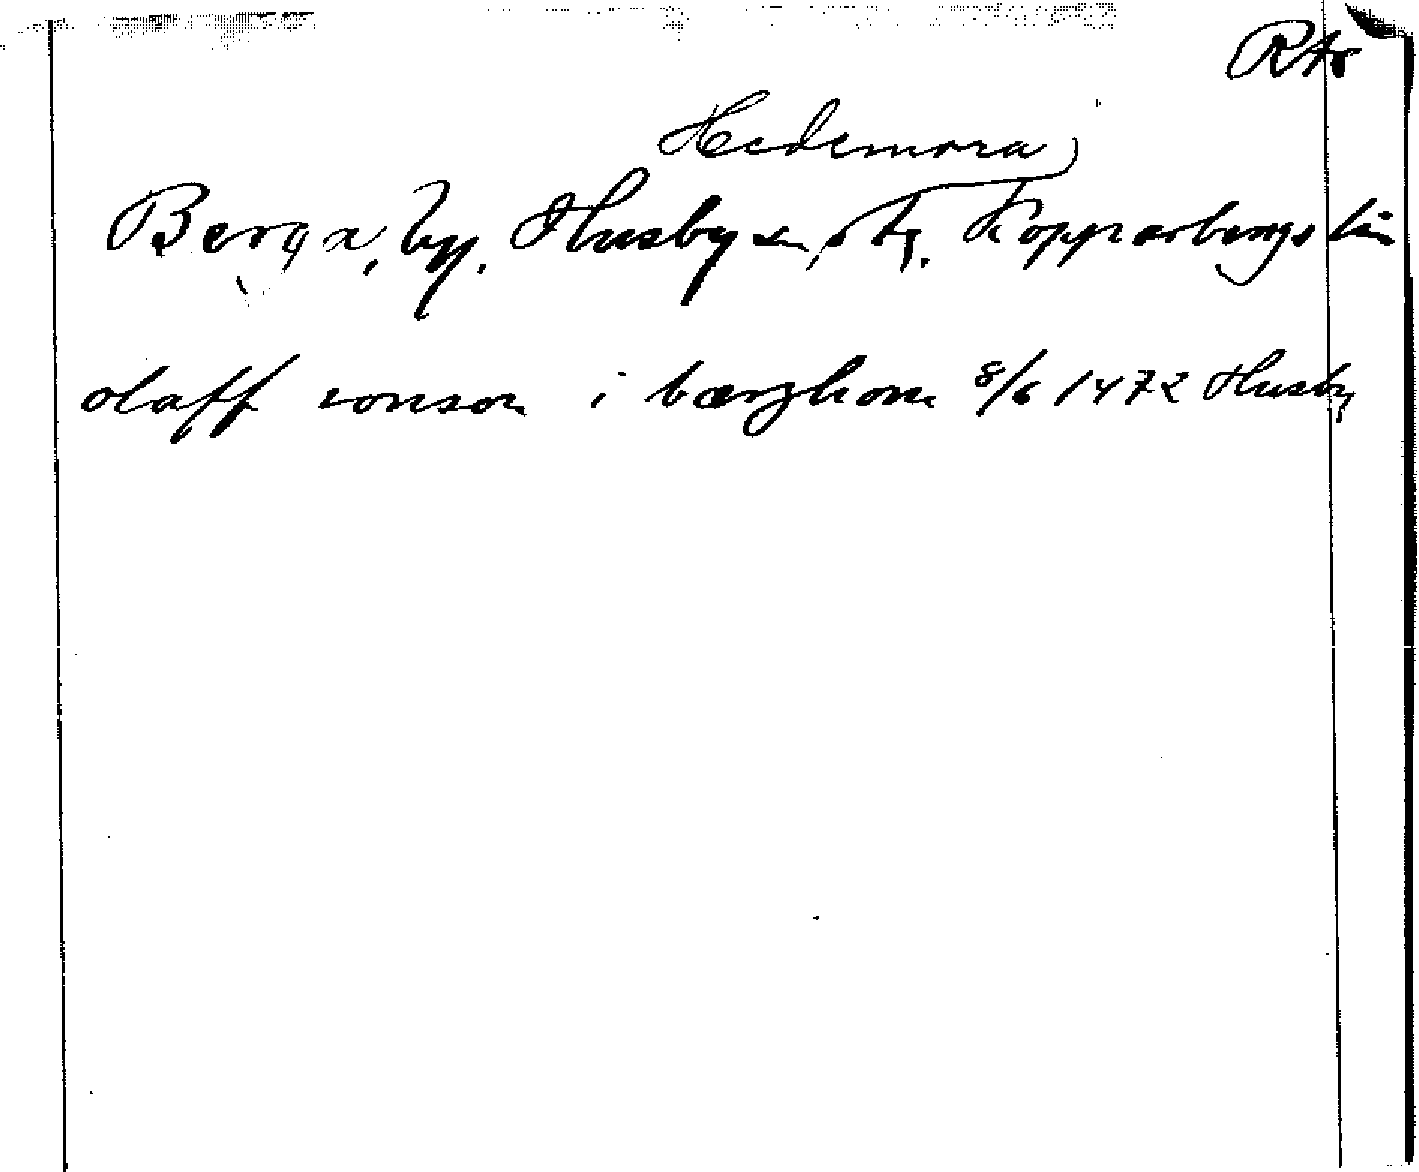 Hedemora
Berga, by, Husby sn, tg. Kopparbergs län
olaff ionson i bærghom 8/6 1472 Husby